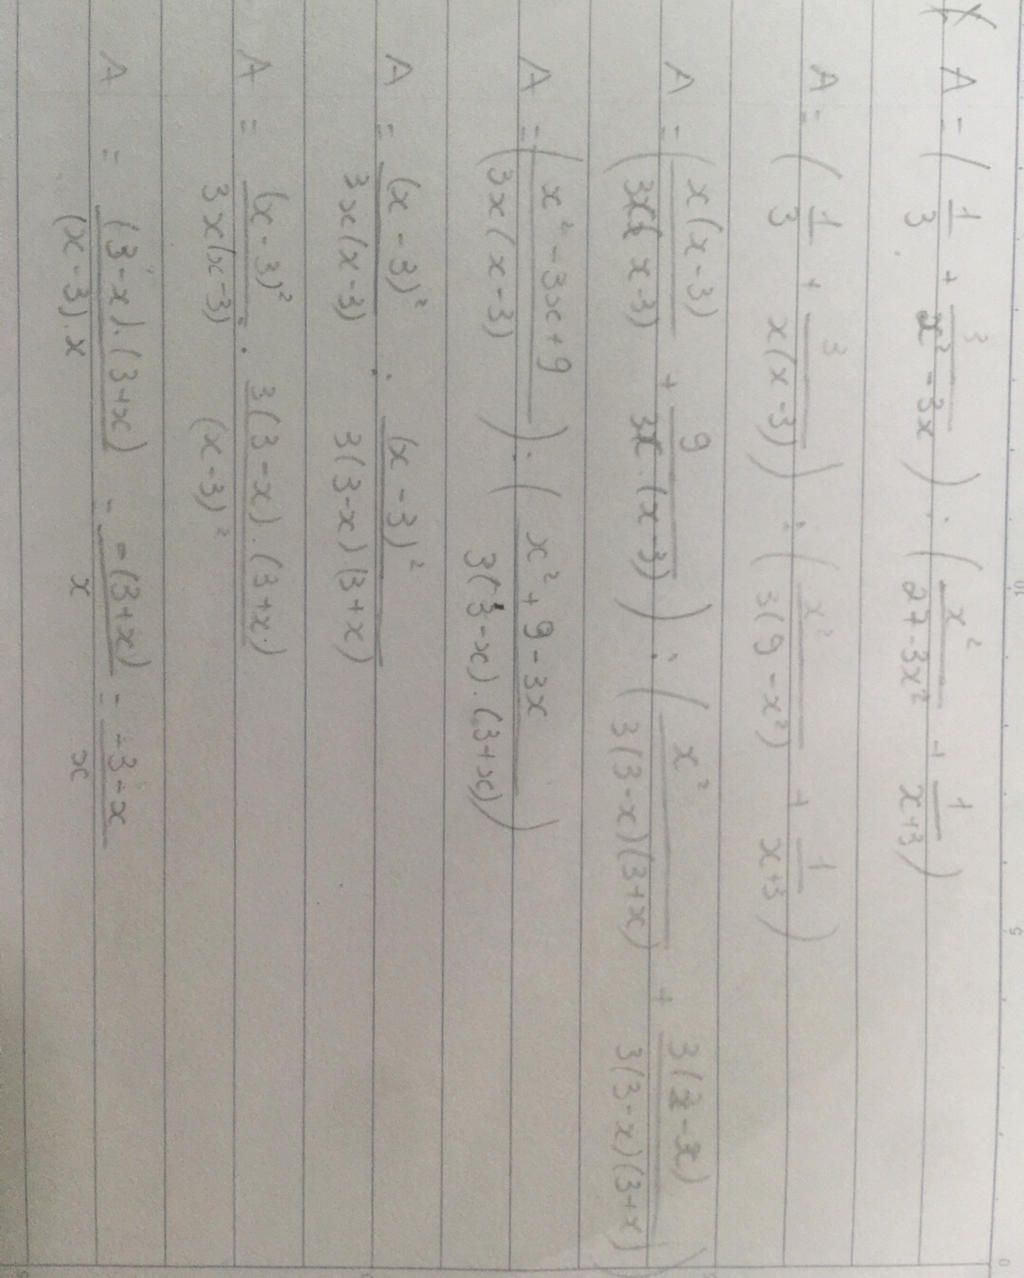 A = ( 1/3 + 3/(x² - 3x) ) : ( x²/(27 - 3x²) + 1/(x+3) )
A = ( 1/3 + 3/(x(x-3)) ) : ( x²/(3(9 - x²)) + 1/(x+3) )
A = ( x(x-3)/(3x(x-3)) + 9/(3x.(x-3)) ) : ( x²/(3(3-x)(3+x)) + 3(3-x)/(3(3-x)(3+x)) )
A = ( (x² - 3x + 9)/(3x(x-3)) ) : ( (x² + 9 - 3x)/(3(3-x).(3+x)) )
A = (x-3)²/(3x(x-3)) : (x-3)²/(3(3-x)(3+x))
A = (x-3)²/(3x(x-3)) . 3(3-x).(3+x)/(x-3)²
A = (3-x).(3+x)/((x-3).x) = -(3+x)/x = (-3-x)/x
5
0